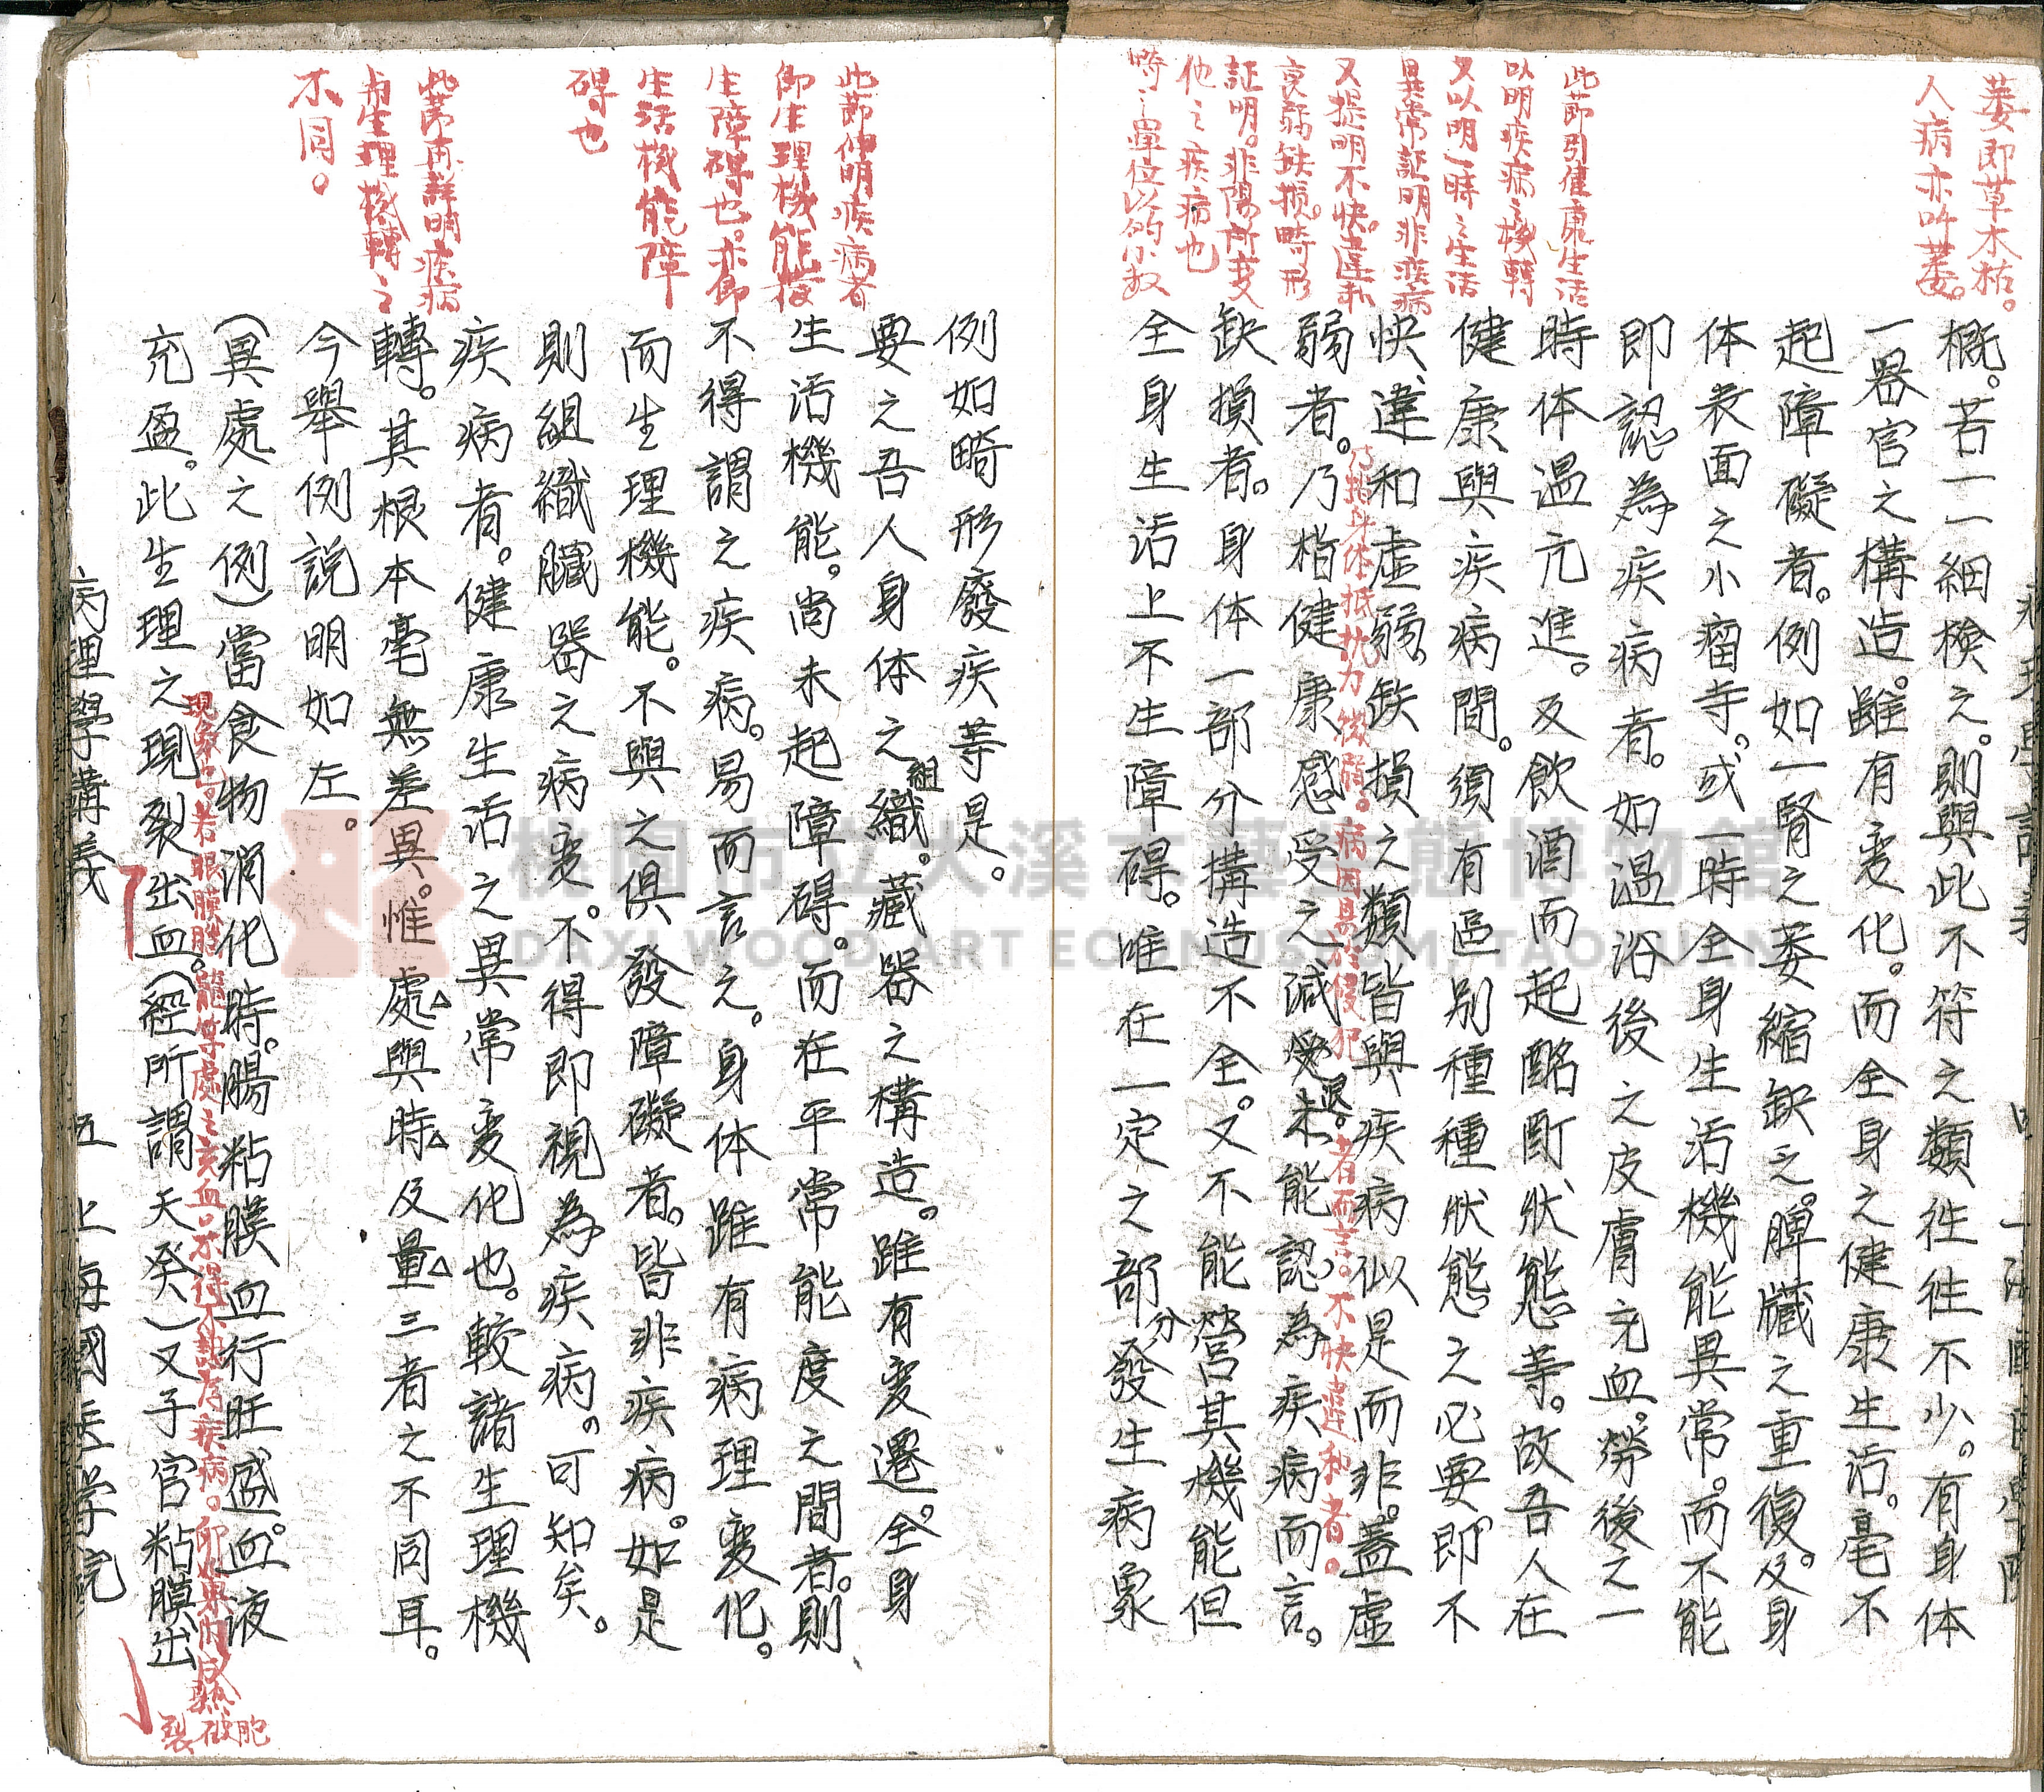 萎即草木枯。
人病亦吽萎。
概。若一一細檢之。則與此不符之類徃徃不少。有身体
一器官之構造。雖有变化。而全身之健康生活。毫不
起障礙者。例如一腎之萎縮缺乏。脾臟之重復。及身
体表面之小瘤寺。或一時全身生活機能異常。而不能
即認為疾病者。如温浴後之皮膚充血。勞後之一
時体温亢進。及飲酒而起酩酊狀態等。故吾人在
健康與疾病間。須有區别種種狀態之必要。即不
快違和虛弱。缺損之類。皆與疾病似是而非。蓋虛
弱者。乃指健康感受之減退。未能認為疾病而言。
缺損者。身体一部分構造不全。又不能營其機能但
全身生活上不生障碍。唯在一定之部分發生病象
此節引健康生活
以明疾病之機轉
又以明一時之生活
異常証明非疾病
又提明不快。違和
虛弱缺損。畸形
証明。非陽所变
他之疾病也
乃指身体抵抗力後弱。病因易於侵犯者而言。不快違和者。
例如畸形廢疾等是。
要之吾人身体之組織。藏器之構造。雖有变遷。全身
生活機能。尚未起障碍。而在平常能度之間者。則
不得謂之疾病。易而言之。身体雖有病理变化。
而生理機能。不與之俱發障礙者。皆非疾病。如是
則組織臟器之病变。不得即視為疾病。可知矣。
疾病者。健康生活之異常变化也。較諸生理機
轉。其根本毫無差異。惟處與時及量三者之不同耳。
今舉例説明如左。
(異處之例)當食物消化時。腸粘膜血行旺盛。血液
充盈。此生理之現裂出血。(經所謂天癸)又子宫粘膜出
此節伸明疾病者
即生理機能發
生障碍也。亦即
生活機能障
碍也
此節再詳明疾病
与生理機轉之
不同。
現象也。若眼膜腦髓等處之充血。不得不認為疾病。卵巢內成熟
胞破裂
病理學講義
五
上海國医学院
桃園市立大溪木藝生態博物館
DAXI WOOD ART ECOMUSEUM, TAOYUAN